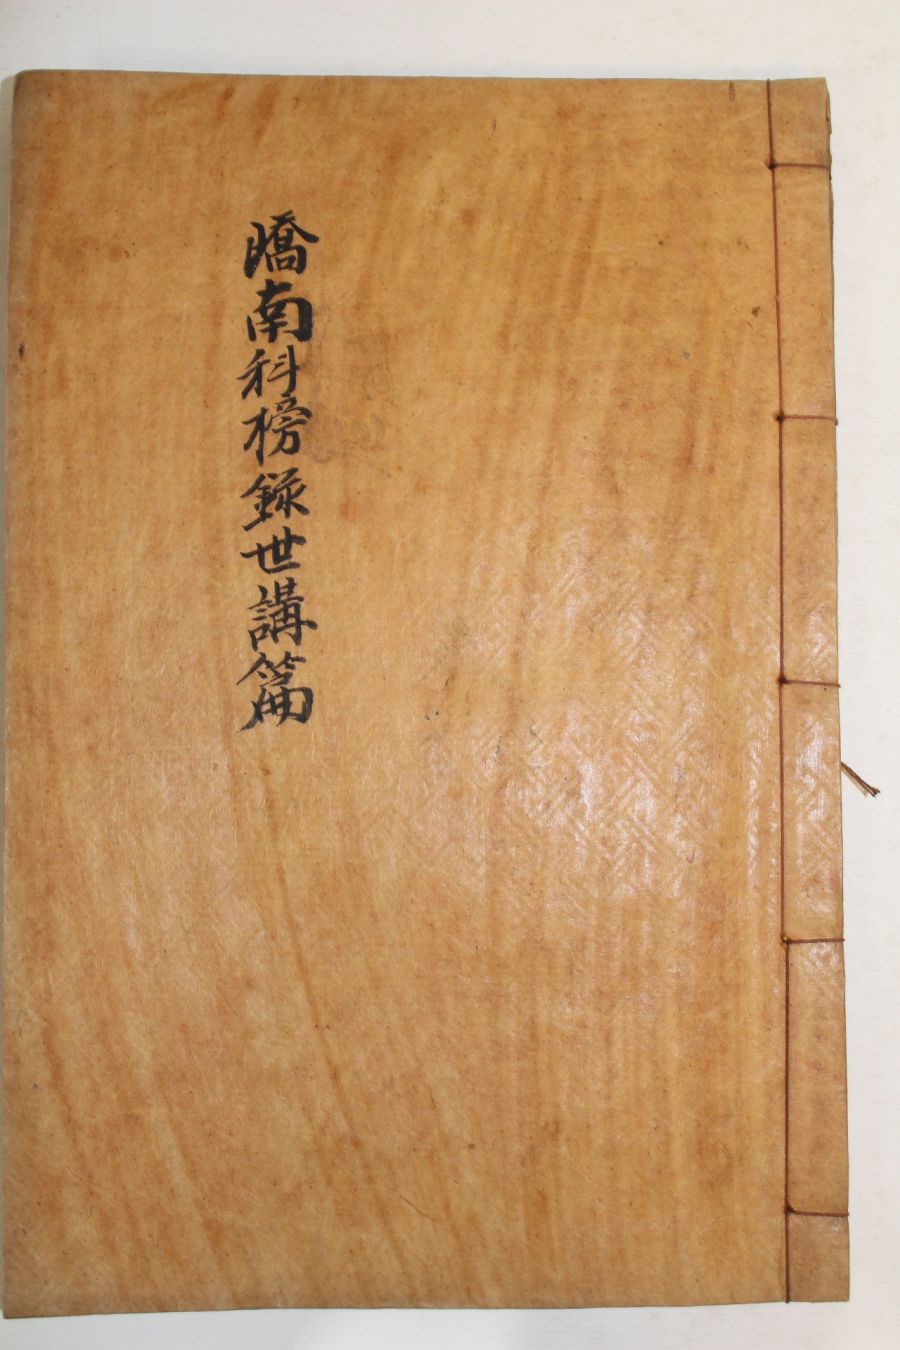 嶠南科榜錄世講篇